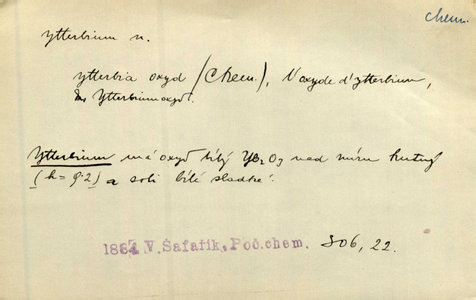 chem.
ytterbium n.
ytterbia oxyd (Chem.), l'oxyde d'ytterbium,
Ytterbiumoxyd.
Ytterbium má oxyd bílý Yb2O3 nad míru hutný
(h = 9·2) a soli bílé sladké.
V. Šafařík, Poč. chem. 306, 22.